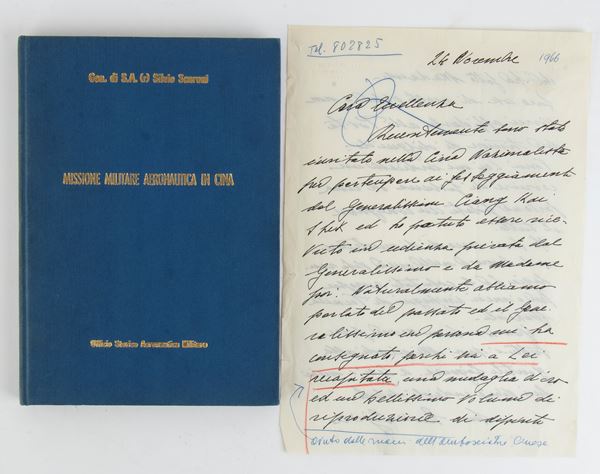 Gen. di S.A. (r) Silvio Scaroni
MISSIONE MILITARE AERONAUTICA IN CINA
Ufficio Storico Aeronautica Militare
Tel. 802825
26 Novembre 1966
Cara Eccellenza
Recentemente sono stato
invitato nella Cina Nazionalista
per partecipare ai festeggiamenti
del Generalissimo Ciang Kai
Shek ed ho potuto essere rice-
vuto in udienza privata dal
Generalissimo e da Madame
poi. Naturalmente abbiamo
parlato del passato ed il Gene-
ralissimo in persona mi ha
consegnato, perchè sia a Lei
recapitata, una medaglia d'oro
ed un bellissimo volume di
riproduzione di dipinti
avuto dalle mani dell'Ambasciatore Cinese